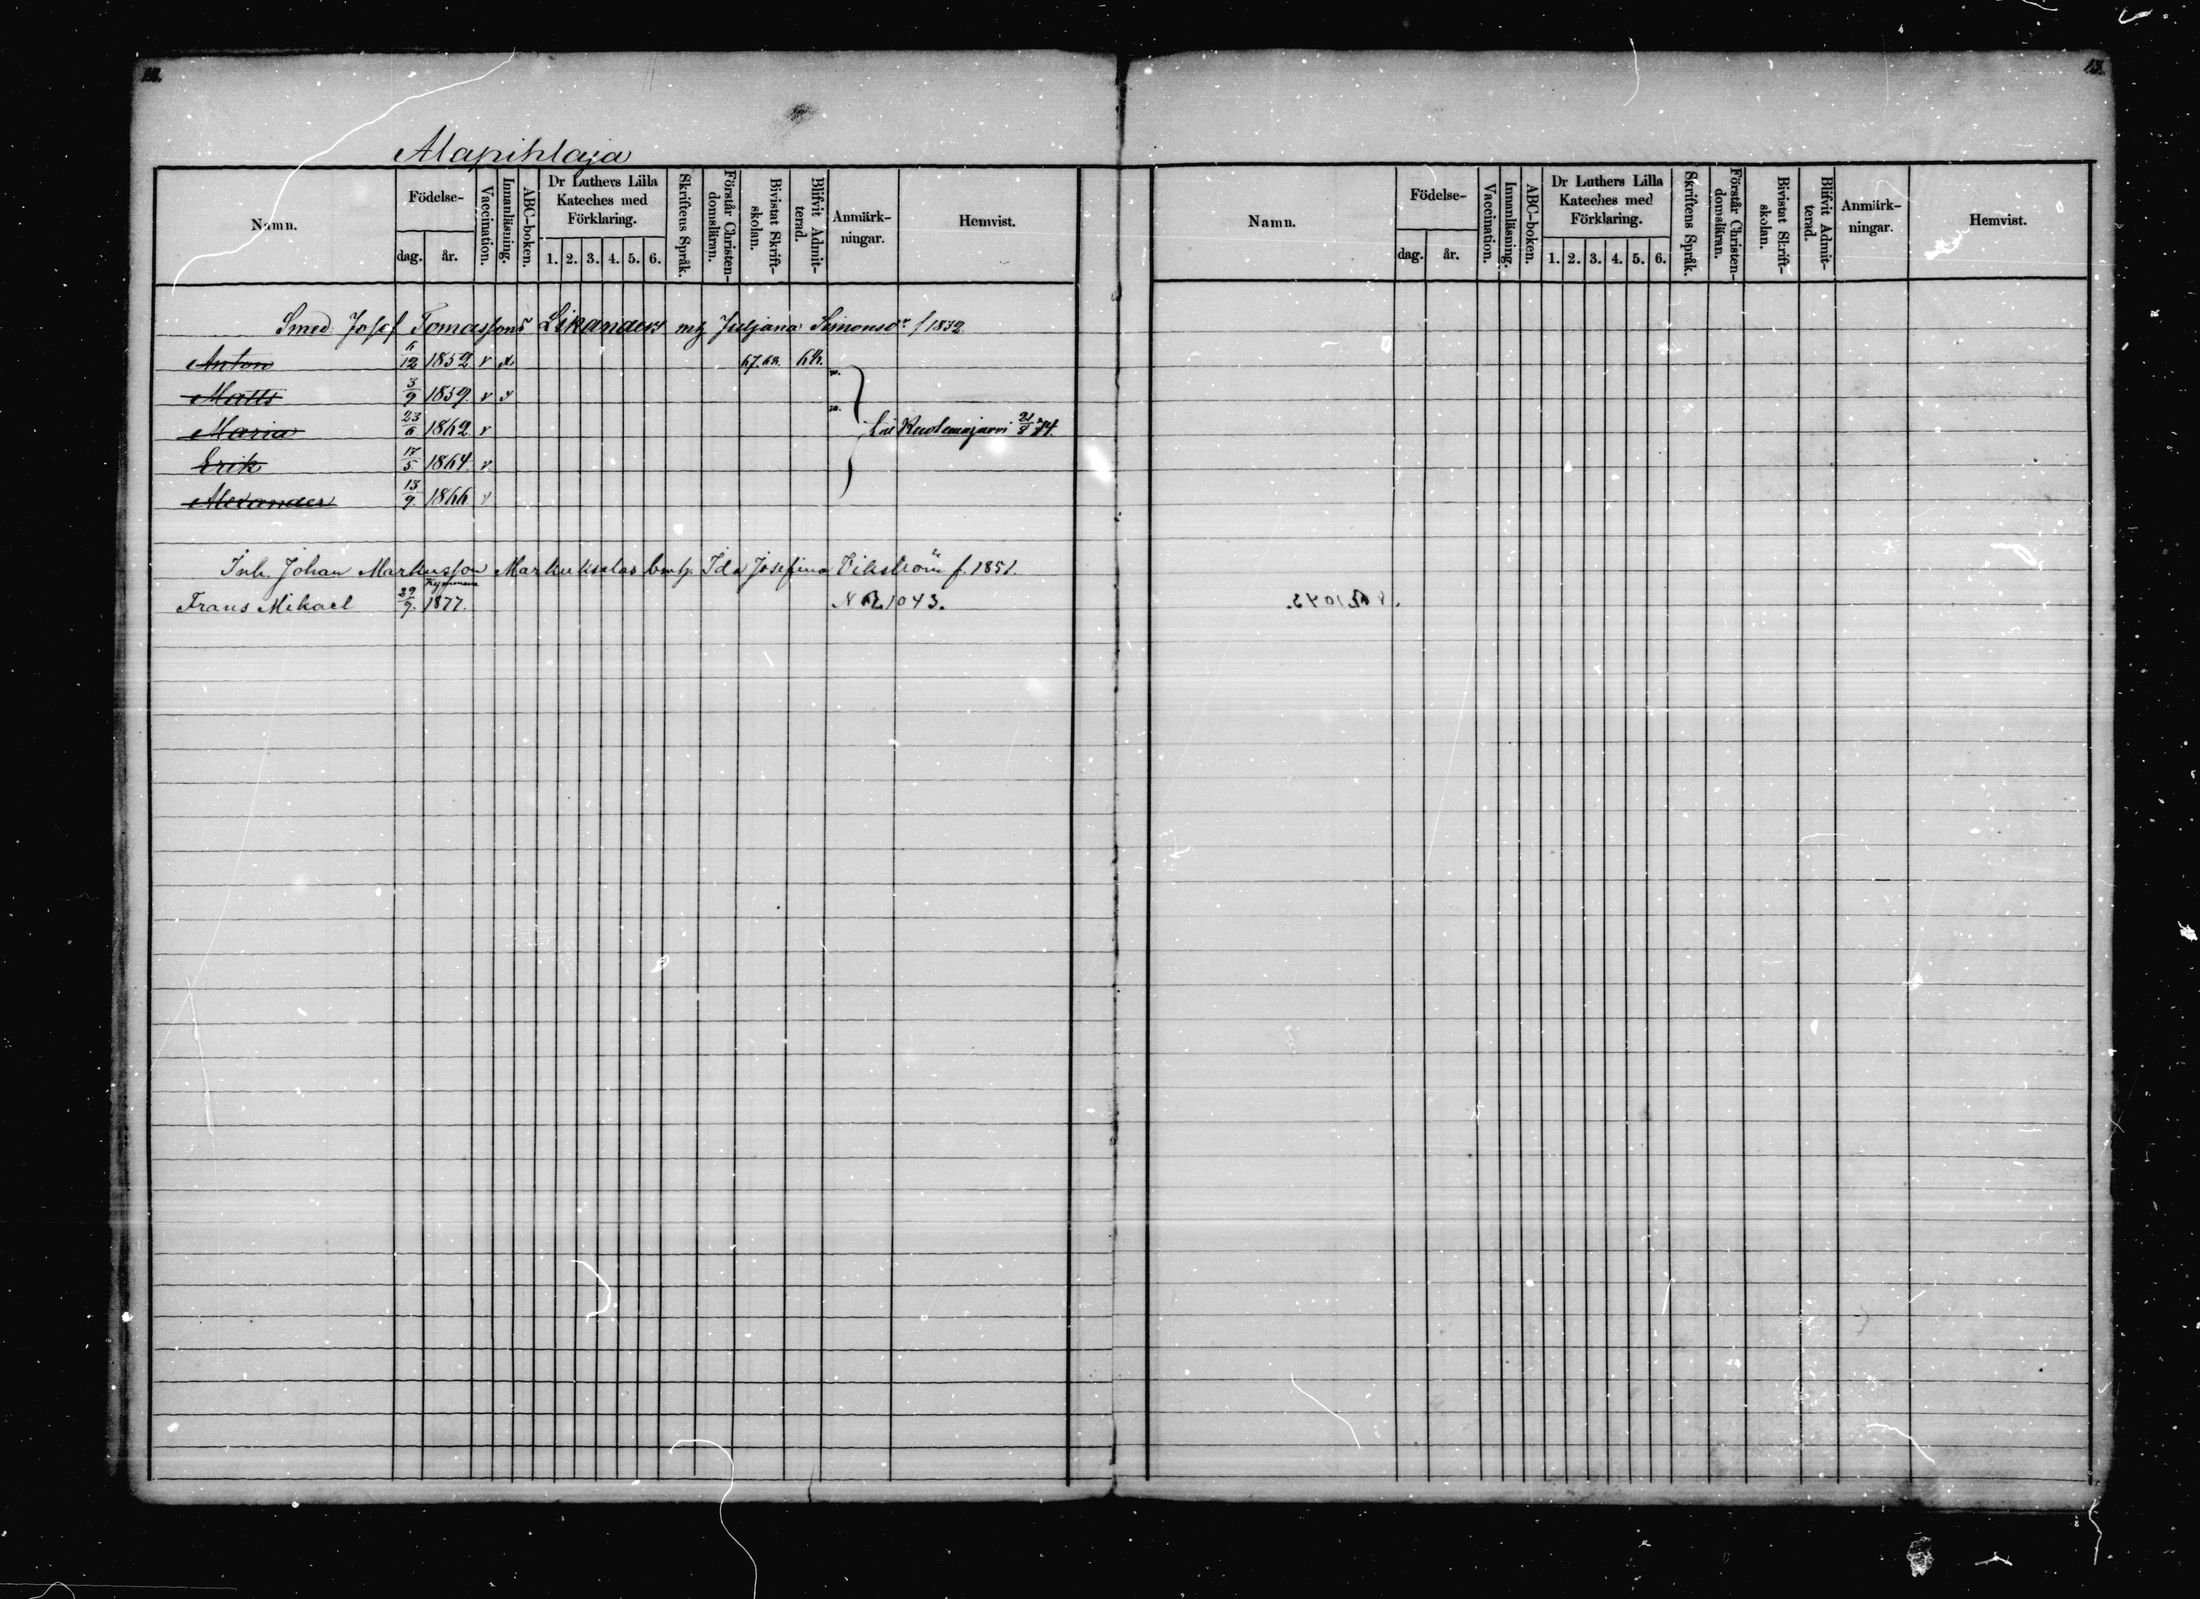 12.
Alapihlaja
Namn. Födelse- dag. år. Vaccination. Innanläsning. ABC-boken. Dr Luthers Lilla Kateches med Förklaring. 1. 2. 3. 4. 5. 6. Skriftens Språk. Förstår Christen-domsläran. Bivistat Skrift-skolan. Blifvit Admit-terad. Anmärk-ningar. Hemvist.
Smed. Josef Tomassons Likander m Juljana Simonsdr f 1832
Anton 6/12 1852 v x 67.68. 68.
Matts 3/9 1859. v v
Maria 23/6 1862. v Kuolemajarvi 74.
Erik 17/5 1864 v
Alexander 13/9. 1866 v
Inh. Johan Markusson Markuksela Ida Josefina Vikström f. 1851.
Kymmene
Frans Mikael 29/9. 1877. N 1043.
13.
Namn. Födelse- dag. år. Vaccination. Innanläsning. ABC-boken. Dr Luthers Lilla Kateches med Förklaring. 1. 2. 3. 4. 5. 6. Skriftens Språk. Förstår Christen-domsläran. Bivistat Skrift-skolan. Blifvit Admit-terad. Anmärk-ningar. Hemvist.